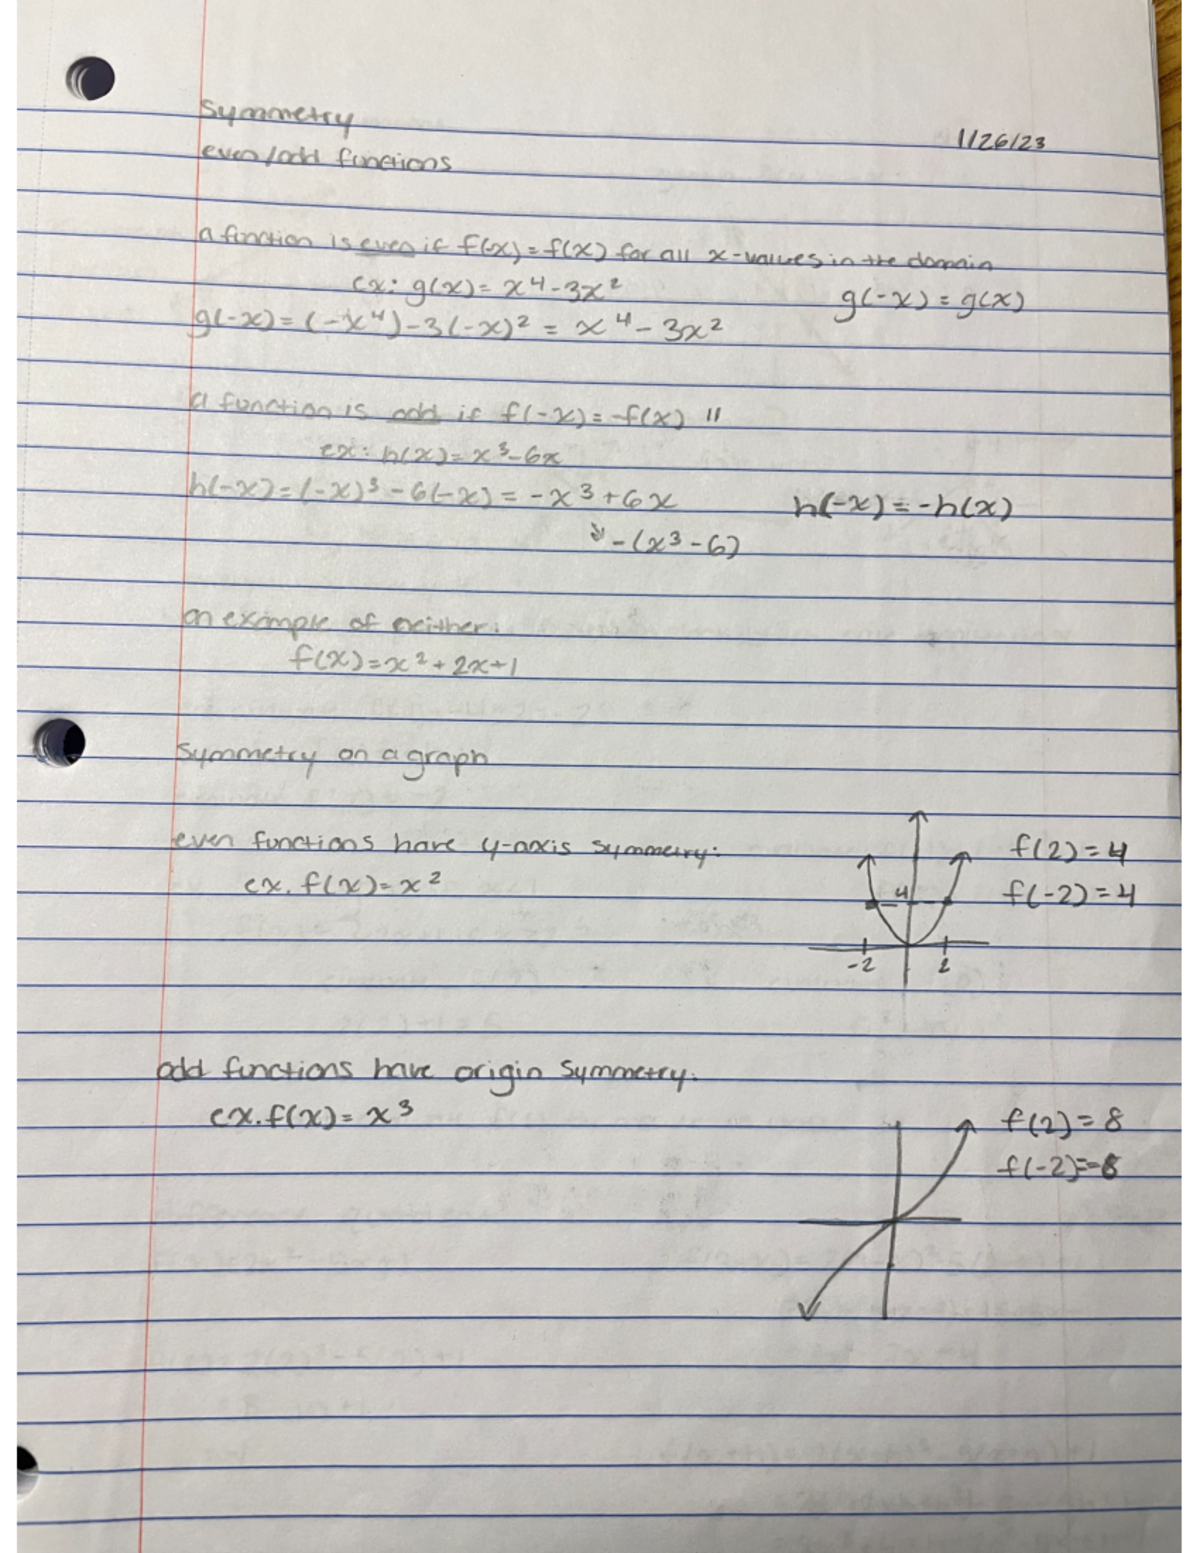 Symmetry
1/26/23
even/odd functions
a function is even if f(-x) = f(x) for all x-values in the domain
ex: g(x) = x⁴ - 3x²
g(-x) = g(x)
g(-x) = (-x⁴) - 3(-x)² = x⁴ - 3x²
a function is odd if f(-x) = -f(x) "
ex: h(x) = x³ - 6x
h(-x) = (-x)³ - 6(-x) = -x³ + 6x
h(-x) = -h(x)
↓ - (x³ - 6)
an example of neither:
f(x) = x² + 2x + 1
symmetry on a graph
even functions have y-axis symmetry:
f(2) = 4
ex. f(x) = x²
4
f(-2) = 4
-2 2
odd functions have origin symmetry:
ex. f(x) = x³
f(2) = 8
f(-2) = -8